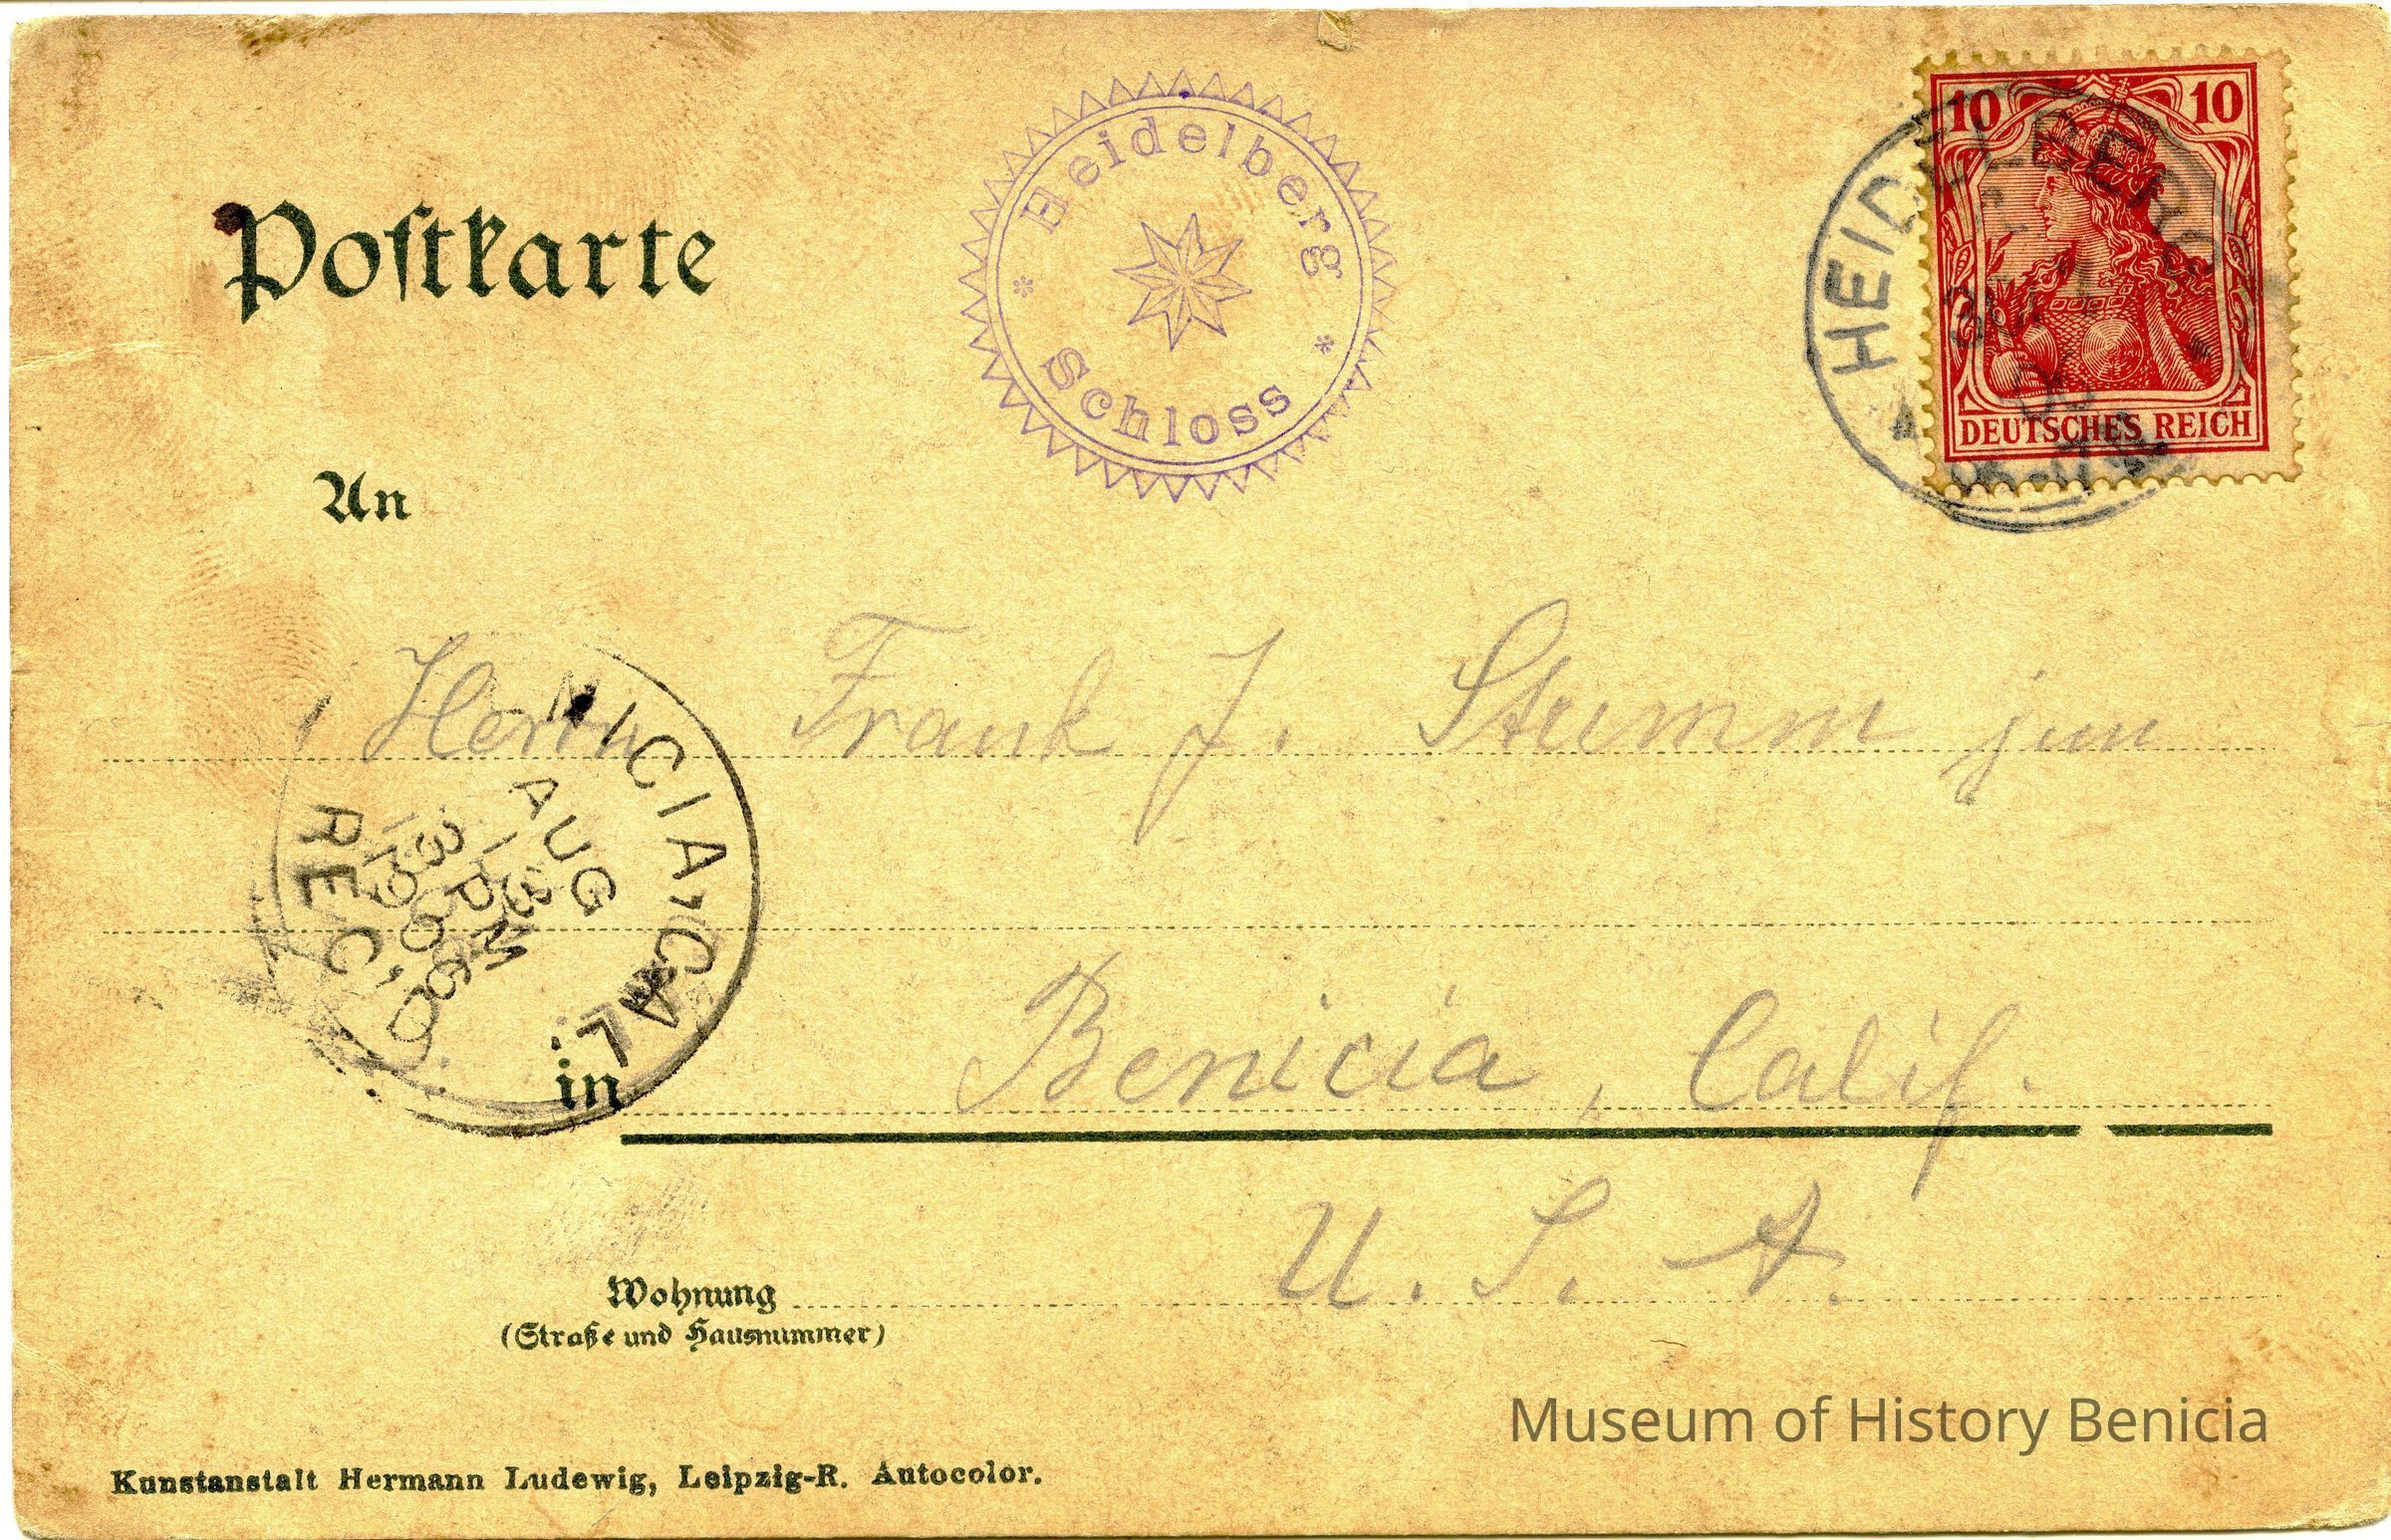 Postkarte
Heidelberg
Schloss
10 10
DEUTSCHES REICH
HEIDELBERG
An
Herrn Frank J. Stumm jun
NICIA, CAL.
AUG
13
1 PM
1906
REC'D
in Benicia, Calif.
U. S. A.
Wohnung
(Straße und Hausnummer)
Museum of History Benicia
Kunstanstalt Hermann Ludewig, Leipzig-R. Autocolor.